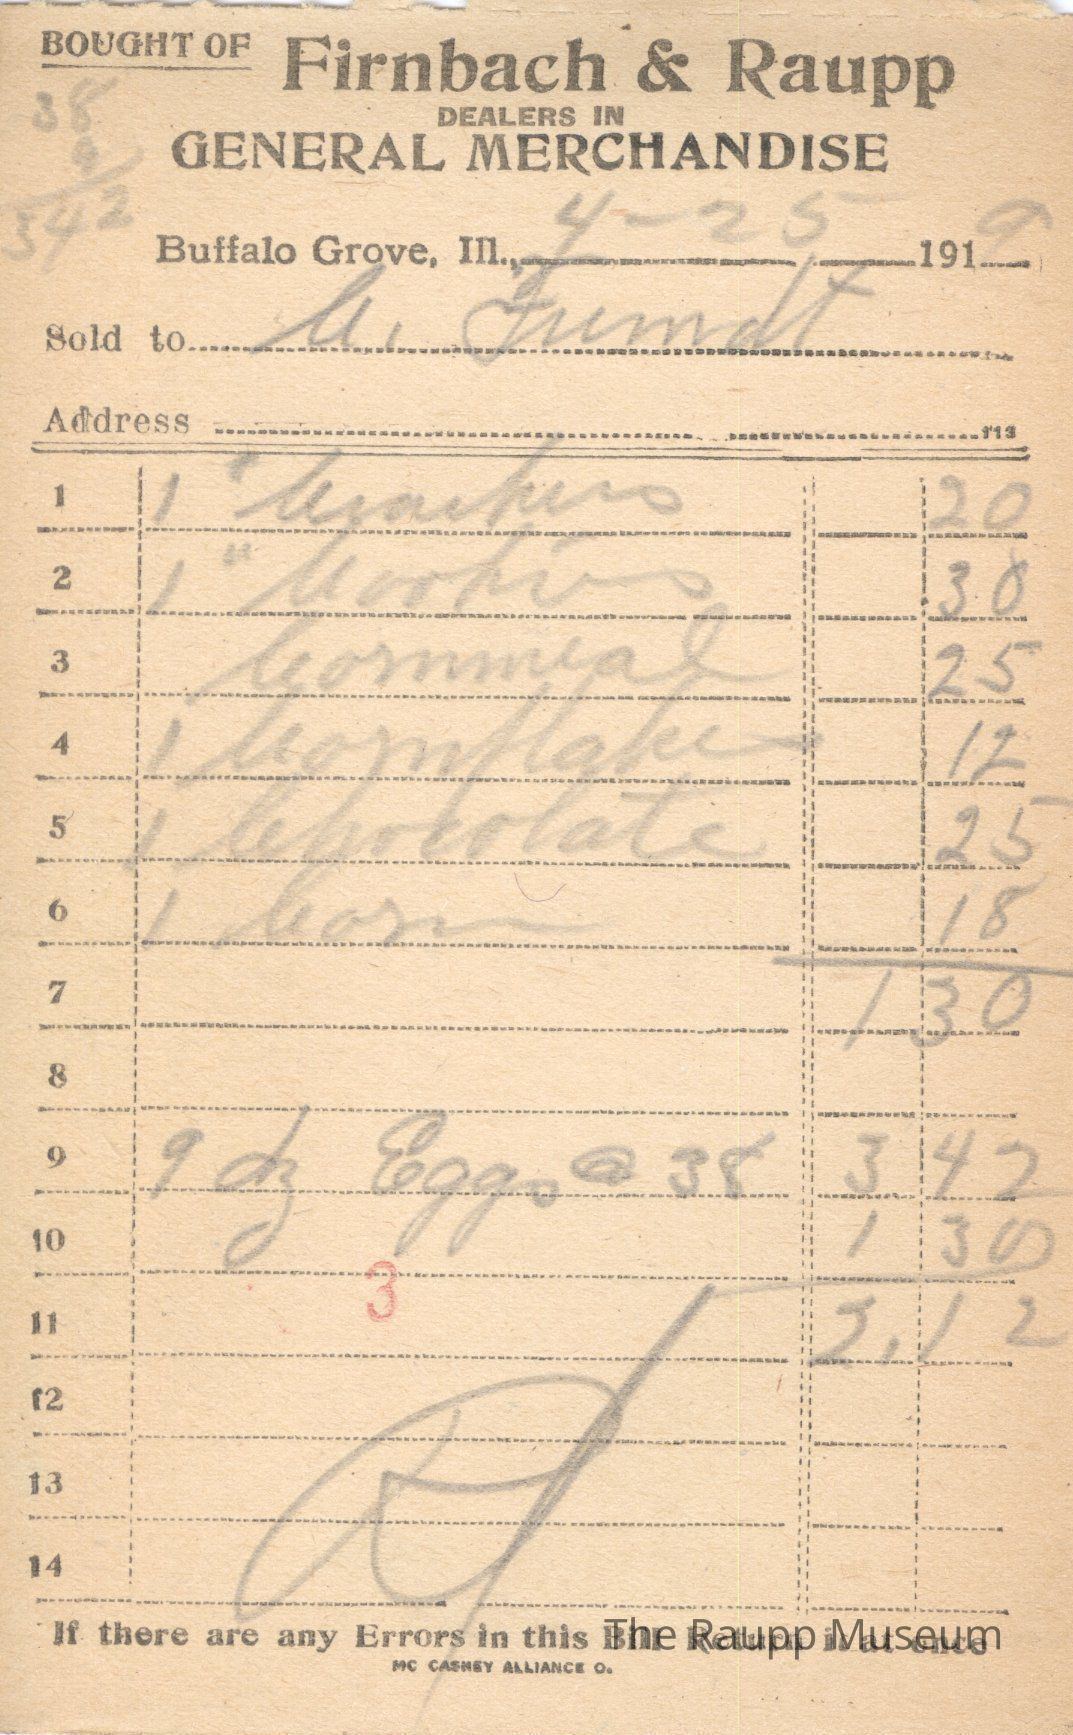 BOUGHT OF Firnbach & Raupp
DEALERS IN
GENERAL MERCHANDISE
38
9
342
Buffalo Grove, Ill., 4-25 1919
Sold to
Address 113
1 1 " Crackers 20
2 1 " Cookies 30
3 Cornmeal 25
4 1 Cornflake 12
5 1 Chocolate 25
6 1 Corn 18
7 1 30
8
9 9 dz Eggs @ 38 3 42
10 1 30
3
11 2,12
12
13
14
If there are any Errors in this Bill Return it at once
The Raupp Museum
MC CASKEY ALLIANCE O.